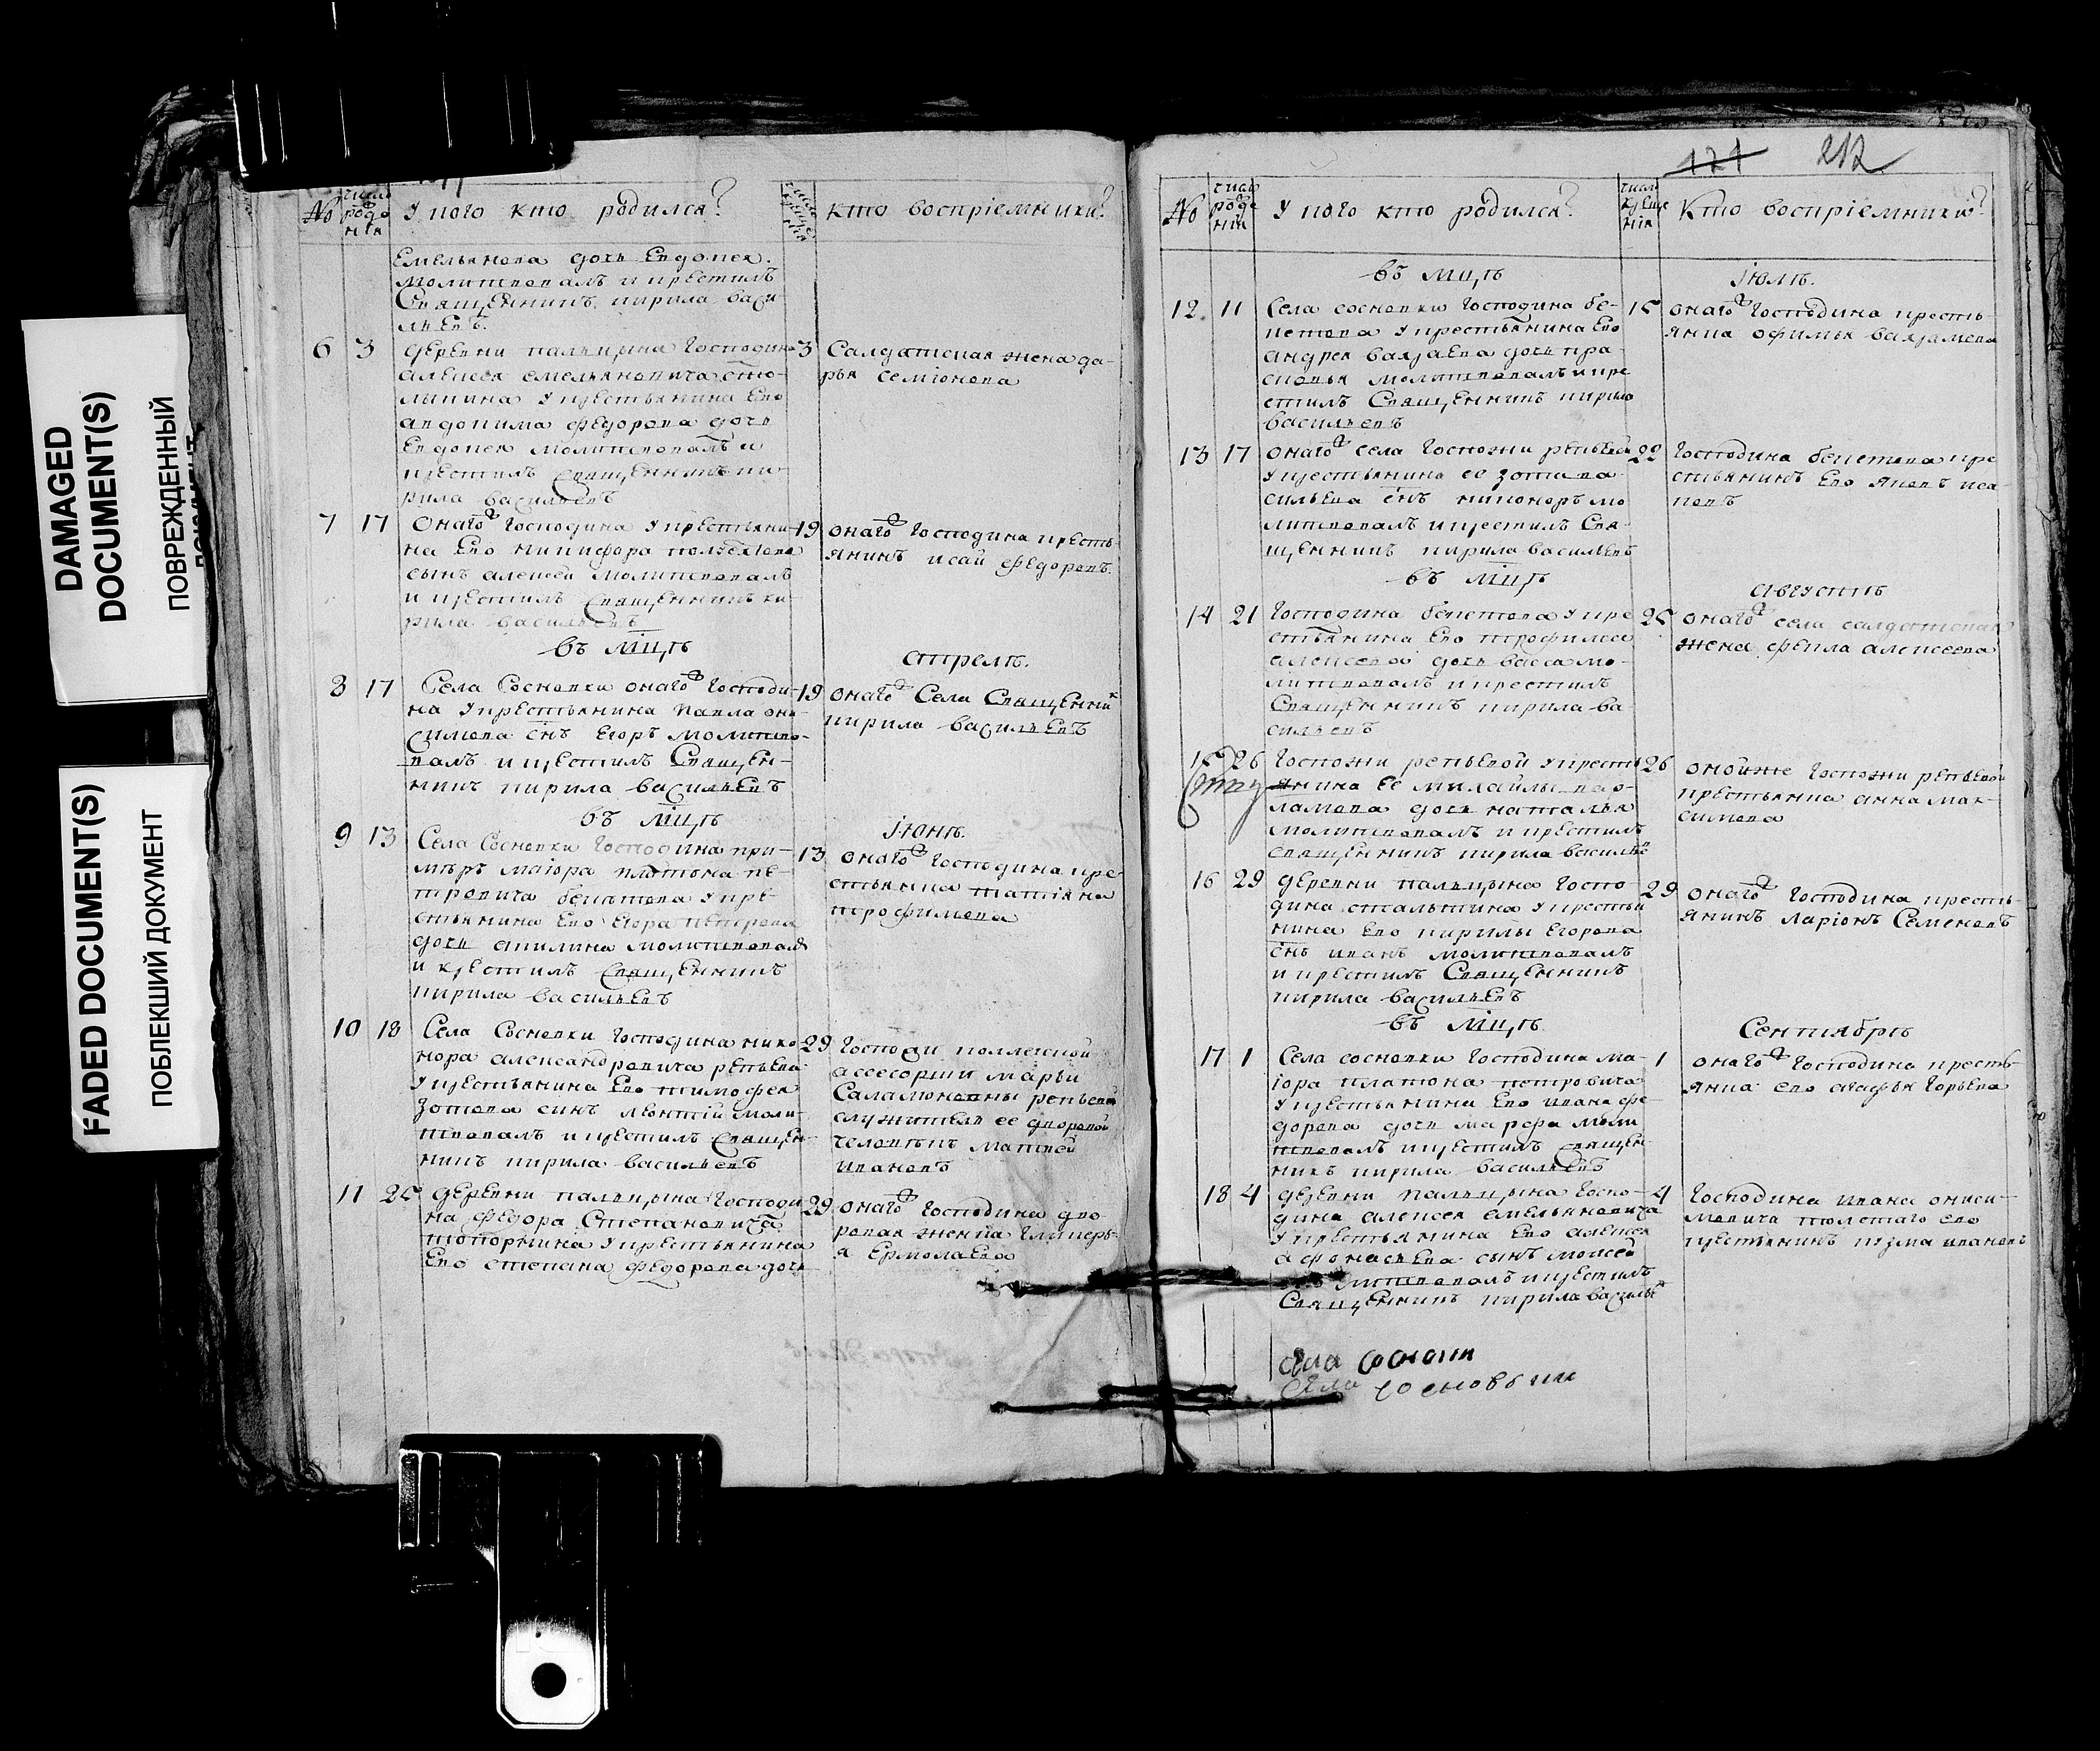 DAMAGED
DOCUMENT(S)
ПОВРЕЖДЕННЫЙ
FADED DOCUMENT(S)
ПОБЛЕКШИЙ ДОКУМЕНТ
№
число рожде нія
У кого кто родился?
число креще нія
кто воспріемники?
Емельянова дочь Евдокея.
молитвовалъ и крестилъ
Священникъ кирила васи-
льевъ.
6 3 деревни пальцына Господина
алексея емельяновича сто-
лыпина у крестьянина Ево
авдокима федорова дочь
Евдокея молитвовалъ и
крестилъ Священникъ ки-
рила васильевъ
3 Салдатская жена да-
рья семіонова
7 17 Онаго Господина у крестьяни-
на Ево никифора
сынъ алексей молитвовалъ
и крестилъ Священникъ ки-
рила васильевъ
19 онаго Господина кресть-
янинъ исай федоровъ.
въ мцѣ апрелѣ.
8 17 Села Сосновки онаго Господи-
на у крестьянина Павла они-
симова снъ Егоръ молитво-
валъ и крестилъ Священ-
никъ кирила васильевъ
19 онаго Села Священникъ
кирила васильевъ
въ мцѣ іюнѣ.
9 13 Села Сосновки Господина при-
мъръ маіора платона пе-
тровича бекетова у кре-
стьянина Ево Егора петрова
дочь акилина молитвовалъ
и крестилъ Священникъ
кирила васильевъ
13 онаго Господина кре-
стьянка татіяна
трофимова
10 18 Села Сосновки Господина нико-
нора александровича репьева
у крестьянина Ево тимофея
зотова синъ леонтій моли-
твовалъ и крестилъ Священ-
никъ кирила васильевъ
29 Господжи коллежской
ассесорши марьи
Саламоновны репьевой
служитель ее дворовой
человѣкъ матвей
ивановъ
11 25 деревни пальцына Господи-
на федора Степановича
топорнина у крестьянина
Ево степана федорова дочь
29 онаго Господина дво-
ровая женка Гликерь-
я Ермолаева
121 212
№
число рожде нія
У кого кто родился?
число креще нія
Кто воспріемники?
въ мцѣ іюлѣ.
12. 11 Села сосновки Господина бе-
кетова у крестьянина Ево
андрея дочь пра-
сковья молитвовалъ и кре
стилъ Священникъ кирила
васильевъ
15 онаго Господина кресть-
янка офимья
13 17 онаго села Госпожи репьевой
у крестьянина ее зота ва-
сильева снъ никоноръ мо
литвовалъ и крестилъ Свя-
щенникъ кирила васильевъ
22 Господина бекетова кре
стьянинъ Ево яковъ иса-
ковъ
въ мцѣ августѣ
14 21 Господина бекетова у кре
стьянина Ево трофима
алексеева дочь васса мо-
литвовалъ и крестилъ
Священникъ кирила ва
сильевъ
25 онаго села салдатская
жена фекла алексеева
15 26 Госпожи репьевой у кресть
янина Ее михайлы вар-
ламова дочь наталья
молитвовалъ и крестилъ
священникъ кирила васильевъ
26 онойже Госпожи репьевой
крестьянка анна мак-
симова
16 29 деревни пальцына Госпо-
дина сталыпина у крестья
нина Ево кирилы Егорова
снъ иванъ молитвовалъ
и крестилъ Священникъ
кирила васильевъ
29 онаго Господина кресть-
янинъ ларіонъ Семеновъ
въ мцѣ Сентябрѣ
17 1 Села сосновки Господина ма-
іора платона петровича
у крестьянина Ево ивана фе-
дорова дочь марфа моли
твовалъ и крестилъ священ
никъ кирила васильевъ
1 онаго Господина кресть-
янка ево агафья Горьева
18 4 деревни пальцына Госпо-
дина алексея емельяновича
у крестьянина Ево алексея
афонасьева сынъ моисей
молитвовалъ и крестилъ
Священникъ кирила васильевъ
4 Господина ивана ониси-
мовича ево
крестьянинъ козма ивановъ
села соснови
села сосновыки